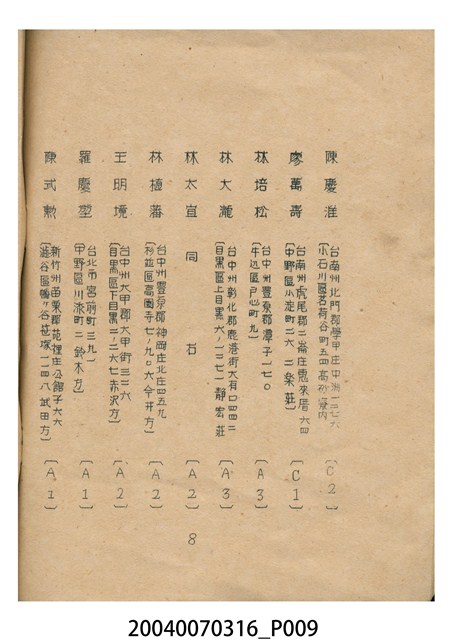 陳慶淮 台南州北門郡學甲庄中洲一三七六 〔C2〕
小石川區茗荷谷町五四高砂寮內
廖萬壽 〔台南州虎尾郡二崙庄惠來厝六四 〔C1〕
中野區小淀町二六 二葉莊〕
林培松 〔台中州豐原郡潭子一七〇 〔A3〕
牛込區戶山町九〕
林大瀧 〔台中州彰化郡鹿港街大有口四四二 〔A3〕
目黑區上目黑六ノ一三七一靜宏莊
林太宣 同右 〔A2〕
林植藩 〔台中州豐原郡神岡庄北庄四五九 〔A2〕
杉並區高圓寺七ノ九〇六今井方〕
王明境 〔台中州大甲郡大甲街三二六 〔A2〕
目黑區下目黑三ノ二六七赤沢方〕
羅慶堃 〔台北市宮前町三九〕 〔A1〕
中野區川添町二 鈴木方〕
陳式勲 新竹州苗栗郡苑裡庄公館子六六 〔A1〕
〔澁谷區幡ヶ谷笹塚一二四八武田方〕
8
20040070316_P009